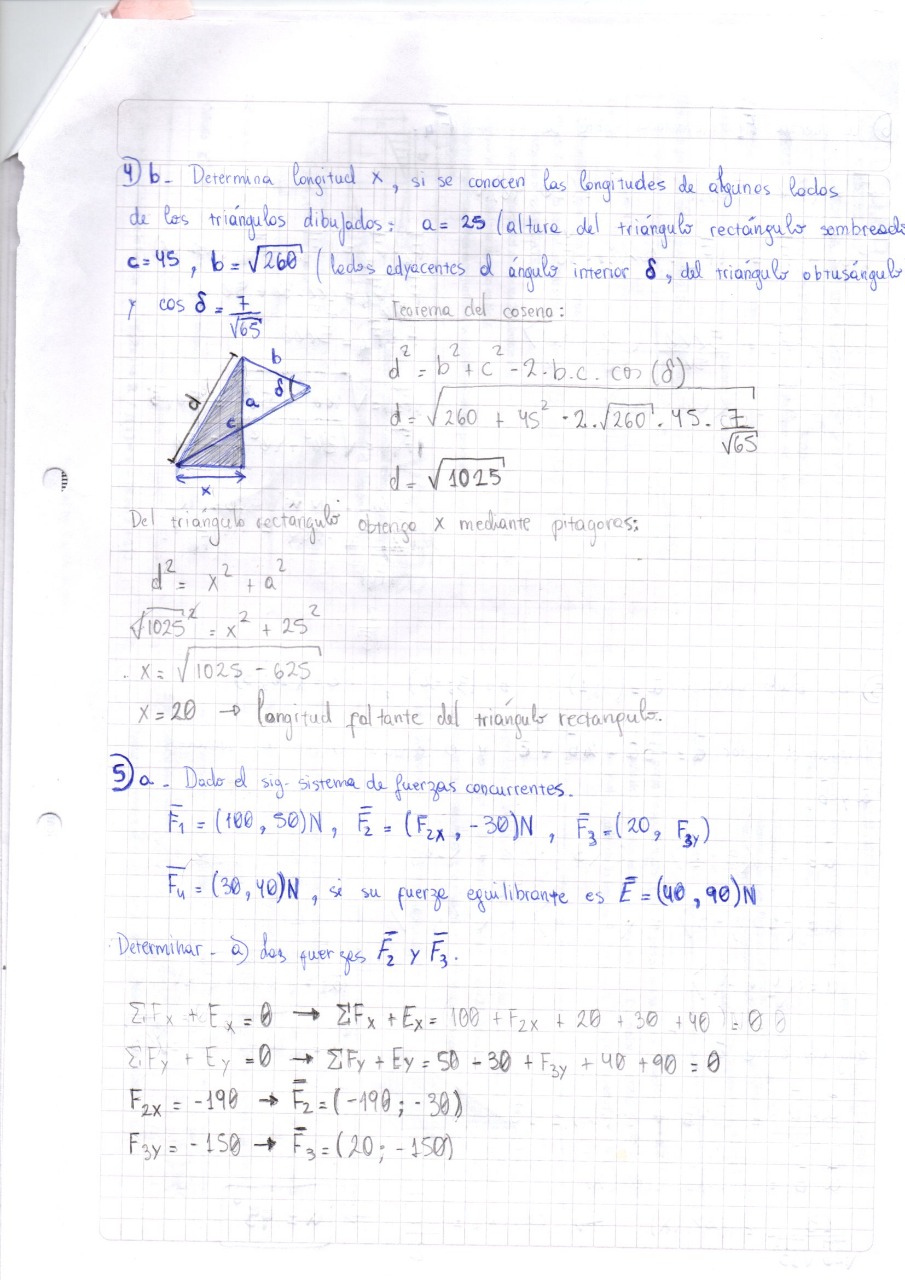 4) b- Determina longitud x, si se conocen las longitudes de algunos lados
de los triángulos dibujados: a = 25 (altura del triángulo rectángulo sombread
c = 45, b = √260 (lados adyacentes al ángulo interior δ, del triángulo obtusángulo
y cos δ = 7/√65
Teorema del coseno:
d² = b² + c² - 2.b.c. cos (δ)
d = √(260 + 45² - 2.√260.45. 7/√65)
d = √1025
b
δ
a
d
c
x
Del triángulo rectángulo obtengo x mediante pitagoras:
d² = x² + a²
√1025² = x² + 25²
x = √(1025 - 625)
x = 20 → longitud faltante del triángulo rectangulo.
5) a- Dado el sig- sistema de fuerzas concurrentes.
F̄₁ = (100, 50)N, F̄₂ = (F₂ₓ, -30)N, F̄₃ = (20, F₃y)
F̄₄ = (30, 40)N, si su fuerza equilibrante es Ē = (40, 90)N
Determinar- a) las fuerzas F̄₂ y F̄₃.
ΣFx + Ex = 0 → ΣFx + Ex = 100 + F₂x + 20 + 30 + 40 = 0 0
ΣFy + Ey = 0 → ΣFy + Ey = 50 - 30 + F₃y + 40 + 90 = 0
F₂x = -190 → F̄₂ = (-190; -30)
F₃y = -150 → F̄₃ = (20; -150)